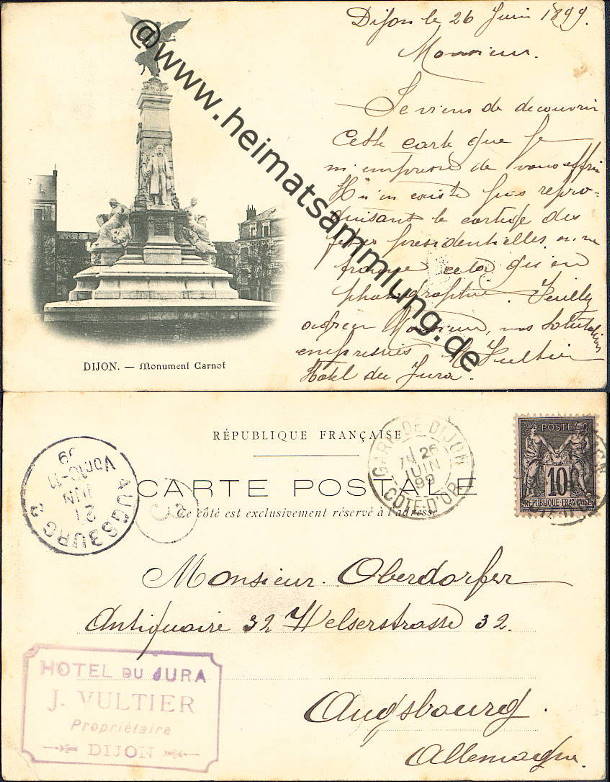 Dijon le 26 Juin 1899.
Monsieur.
Je viens de decouvrir
Cette carte que je
m'empresse de vous offrir
Il n'en existe pas repro-
duisant le cortège des
fêtes presidentielles, on ne
trouve cela qu'en
photographie. Veuillez
agréer Monsieur, nos salutations
empressées J. Vultier
Hôtel du Jura.
@www.heimatsammlung.de
DIJON. — Monument Carnot
RÉPUBLIQUE FRANÇAISE
CARTE POSTALE
Ce côté est exclusivement réservé à l'adresse
GARE DE DIJON
26
JUIN
99
COTE D'OR
POSTE
10
REPUBLIQUE FRANÇAISE
AUGSBURG 2
JUN
99
Monsieur. Oberdorfer
Antiquaire 32 Welserstrasse 32.
Augsbourg.
Allemagne.
HOTEL DU JURA
J. VULTIER
Propriétaire
DIJON